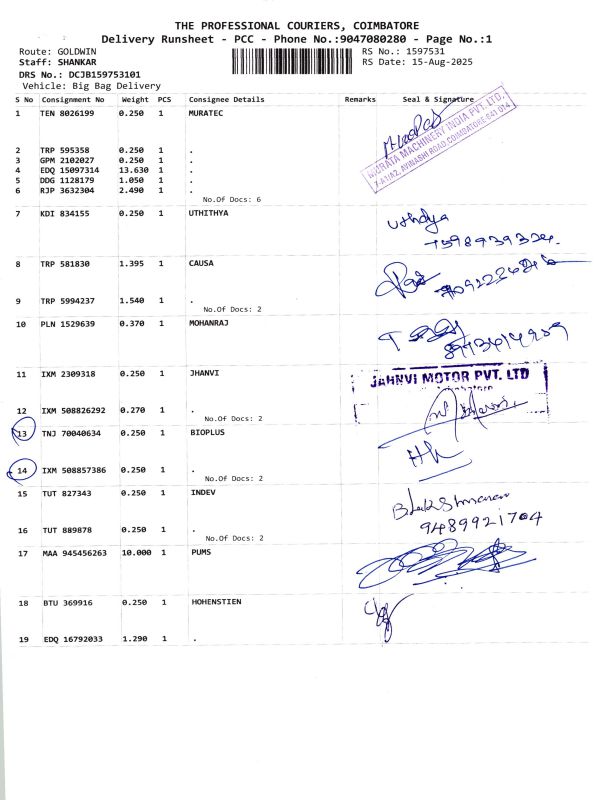 THE PROFESSIONAL COURIERS, COIMBATORE
Delivery Runsheet - PCC - Phone No.:9047080280 - Page No.:1
Route: GOLDWIN
RS No.: 1597531
Staff: SHANKAR
RS Date: 15-Aug-2025
DRS No.: DCJB159753101
Vehicle: Big Bag Delivery
S No Consignment No Weight PCS Consignee Details Remarks Seal & Signature
1 TEN 8026199 0.250 1 MURATEC
MURATA MACHINERY INDIA PVT. LTD.
7-A1/A2, AVINASHI ROAD, COIMBATORE-641 014
2 TRP 595358 0.250 1 .
3 GPM 2102027 0.250 1 .
4 EDQ 15097314 13.630 1 .
5 DDG 1128179 1.050 1 .
6 RJP 3632304 2.490 1 .
No.Of Docs: 6
7 KDI 834155 0.250 1 UTHITHYA
8 TRP 581830 1.395 1 CAUSA
9 TRP 5994237 1.540 1 .
No.Of Docs: 2
10 PLN 1529639 0.370 1 MOHANRAJ
11 IXM 2309318 0.250 1 JHANVI
JAHNVI MOTOR PVT. LTD
12 IXM 508826292 0.270 1 .
No.Of Docs: 2
13 TNJ 70040634 0.250 1 BIOPLUS
14 IXM 508857386 0.250 1 .
No.Of Docs: 2
15 TUT 827343 0.250 1 INDEV
9489921704
16 TUT 889878 0.250 1 .
No.Of Docs: 2
17 MAA 945456263 10.000 1 PUMS
18 BTU 369916 0.250 1 HOHENSTIEN
19 EDQ 16792033 1.290 1 .